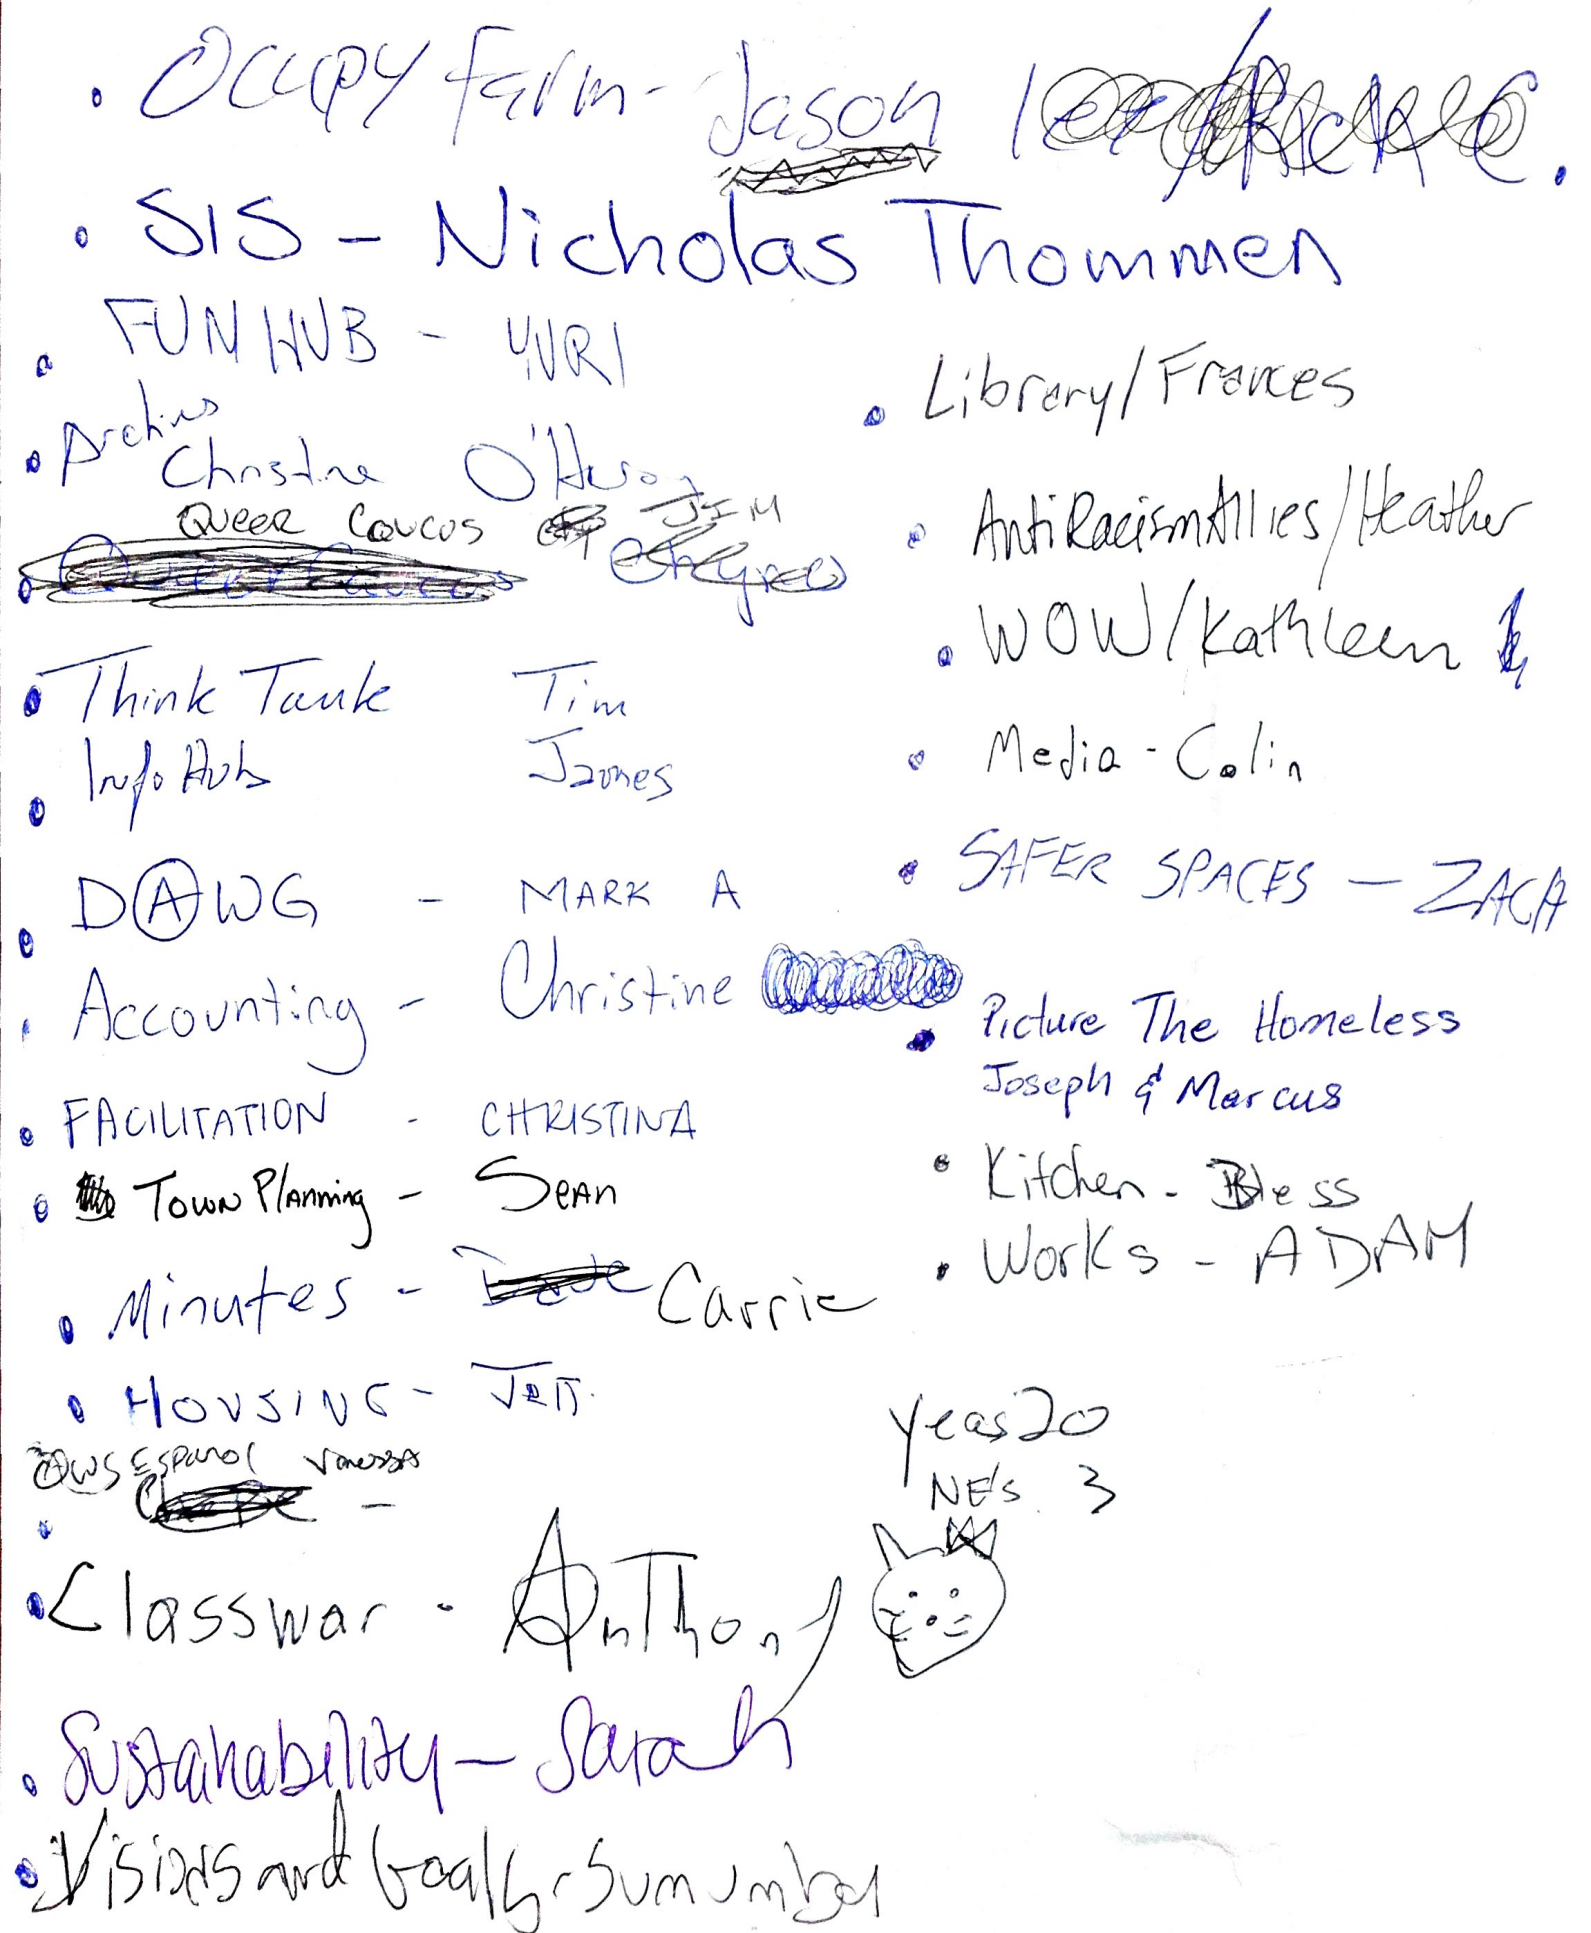 Occupy Farm - Jason
SIS - Nicholas Thommen
FUN HUB - YURI
Archives
Christine
Queer Caucus JIM
Think Tank Tim
Info Hub James
DAWG - MARK A
Accounting - Christine
FACILITATION - CHRISTINA
Town Planning - Sean
Minutes - Carrie
HOUSING - Jeff
OWS Espanol Vanessa
Classwar - Anthony
Sustainability - Sarah
Visions and Goals -
Library/Frances
AntiRacismAllies/Heather
WOW/Kathleen
Media - Colin
SAFER SPACES - ZACH
Picture The Homeless
Joseph & Marcus
Kitchen - Bless
Works - ADAM
Yeas 20
NE's 3